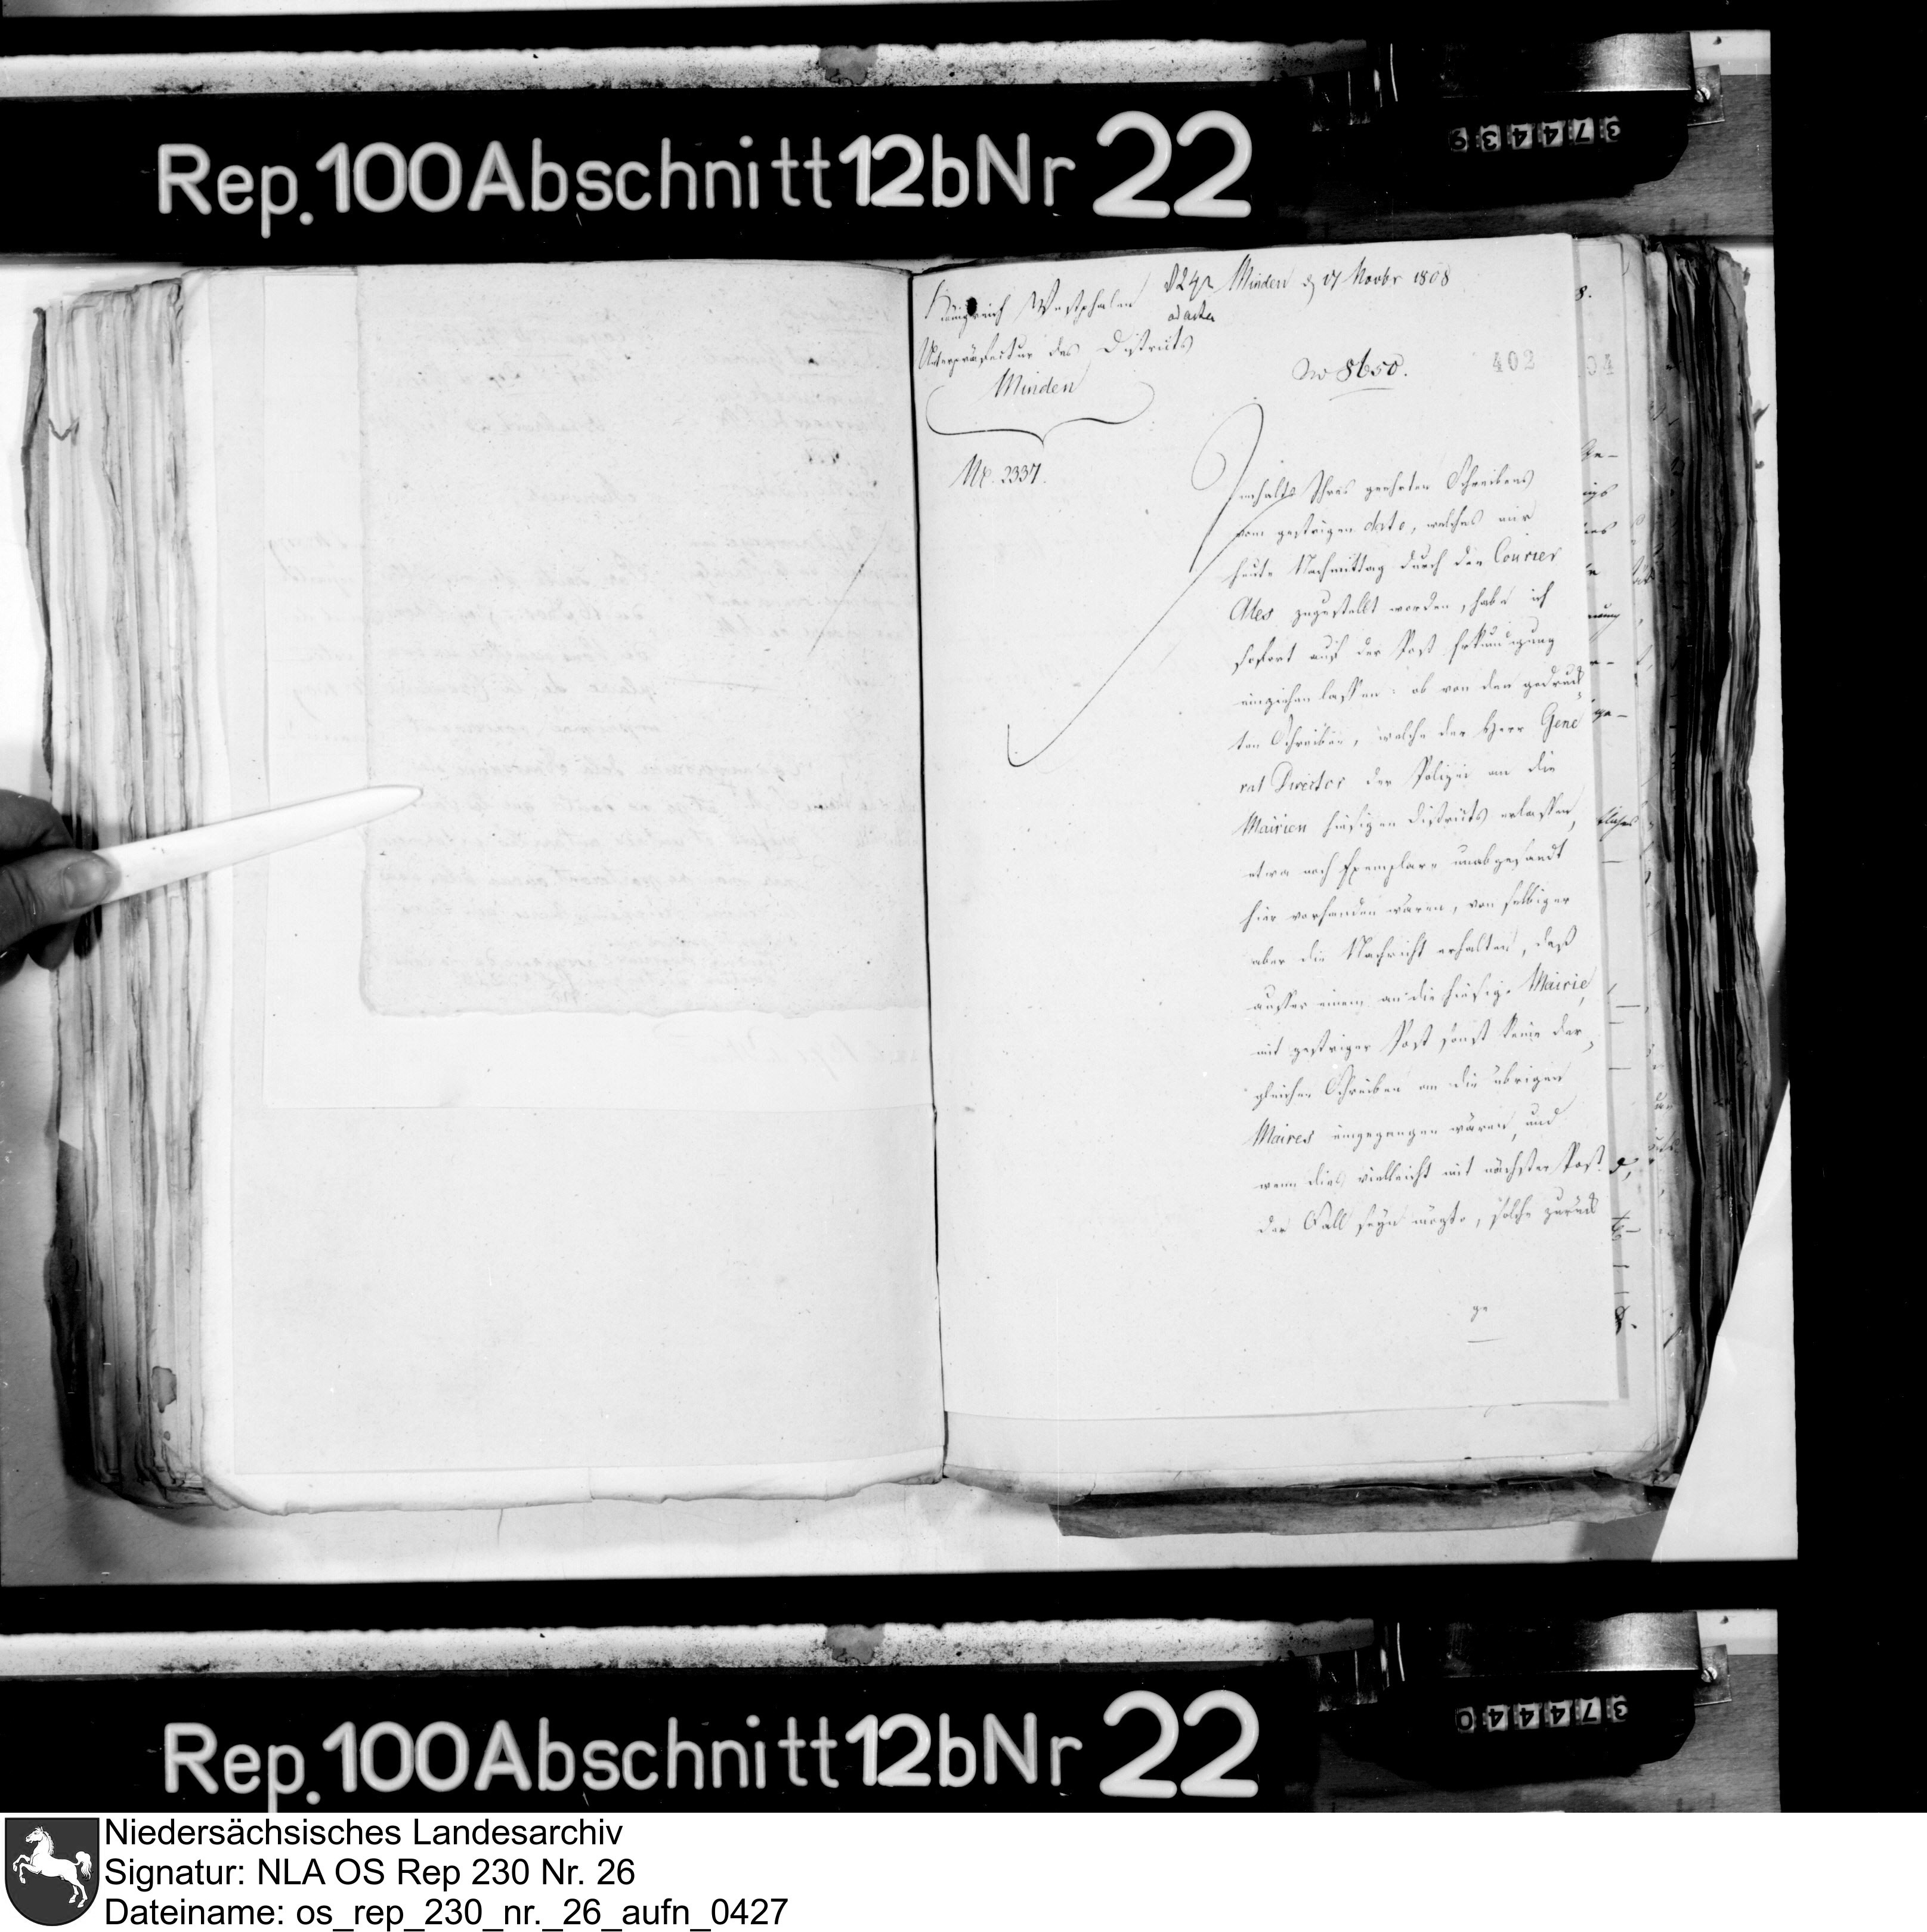 Rep. 100 Abschnitt 12b Nr 22
374439
Königreich Westphalen
Unterpräfectur des Districts
Minden
Minden d 17 Novbr 1808
ad acta
No 8650.
402
04
8.
Nr. 2337.
Inhalts Ihres geehrten Schreibens
vom gestrigen dato, welches mir
heute Nachmittag durch den Courier
zugestellt worden, habe ich
sofort auf der Post Erkundigung
einziehen lassen: ob von den gedruck-
ten Schreiben, welche der Herr Gene
ral Director der Polizei an die
Mairien hiesigen Districts erlassen,
etwa noch Exemplare unabgesandt
hier vorhanden wären, von selbiger
aber die Nachricht erhalten, daß
ausser einem an die hiesige Mairie,
mit gestriger Post sonst keine der-
gleichen Schreiben an die übrigen
Maires eingegangen wären, und
wenn dies vielleicht mit nächster Post
der Fall seyn mögte, solche zurück
ge
Rep. 100 Abschnitt 12b Nr 22
374440
Niedersächsisches Landesarchiv
Signatur: NLA OS Rep 230 Nr. 26
Dateiname: os_rep_230_nr._26_aufn_0427